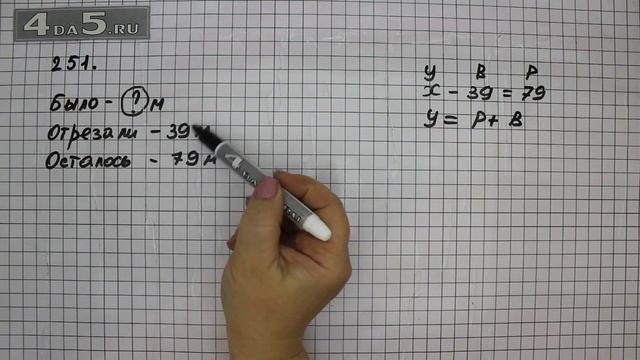 4DA5.RU
251.
Было - ? м
Отрезали - 39
Осталось - 79 м
У В Р
х - 39 = 79
У = Р + В